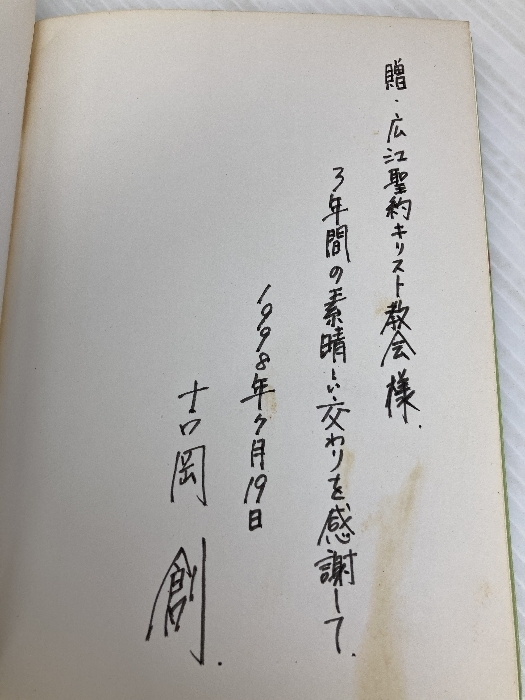 贈・広江聖約キリスト教会様.
3年間の素晴しい交わりを感謝して.
1998年7月19日
吉岡 創.